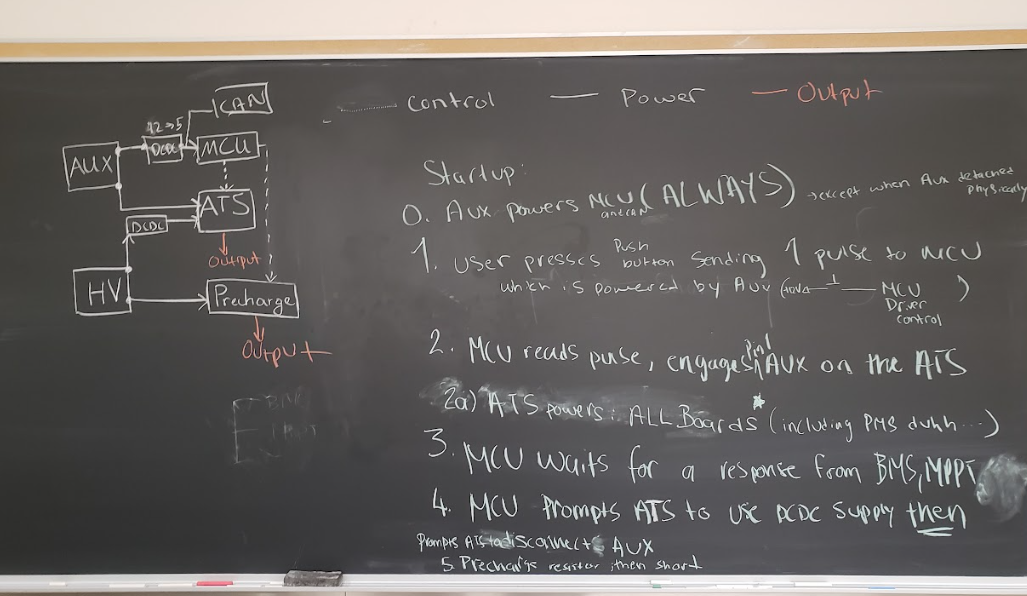 CAN
12→5
AUX
DCDC
MCU
ATS
DCDC
Output
HV
Precharge
Output
Control
Power
Output
Startup:
0. Aux powers MCU (ALWAYS) → except when Aux detached
and CAN
physically
1. User presses Push button sending 1 pulse to MCU
which is powered by Aux (
MCU
)
Driver
control
2. MCU reads pulse, engages Pin1 AUX on the ATS
2a) ATS powers: ALL Boards* (including PMS duhh...)
3. MCU waits for a response from BMS, MPPT
4. MCU Prompts ATS to use DCDC supply then
Prompts ATS to disconnect AUX
5. Precharge resistor, then short